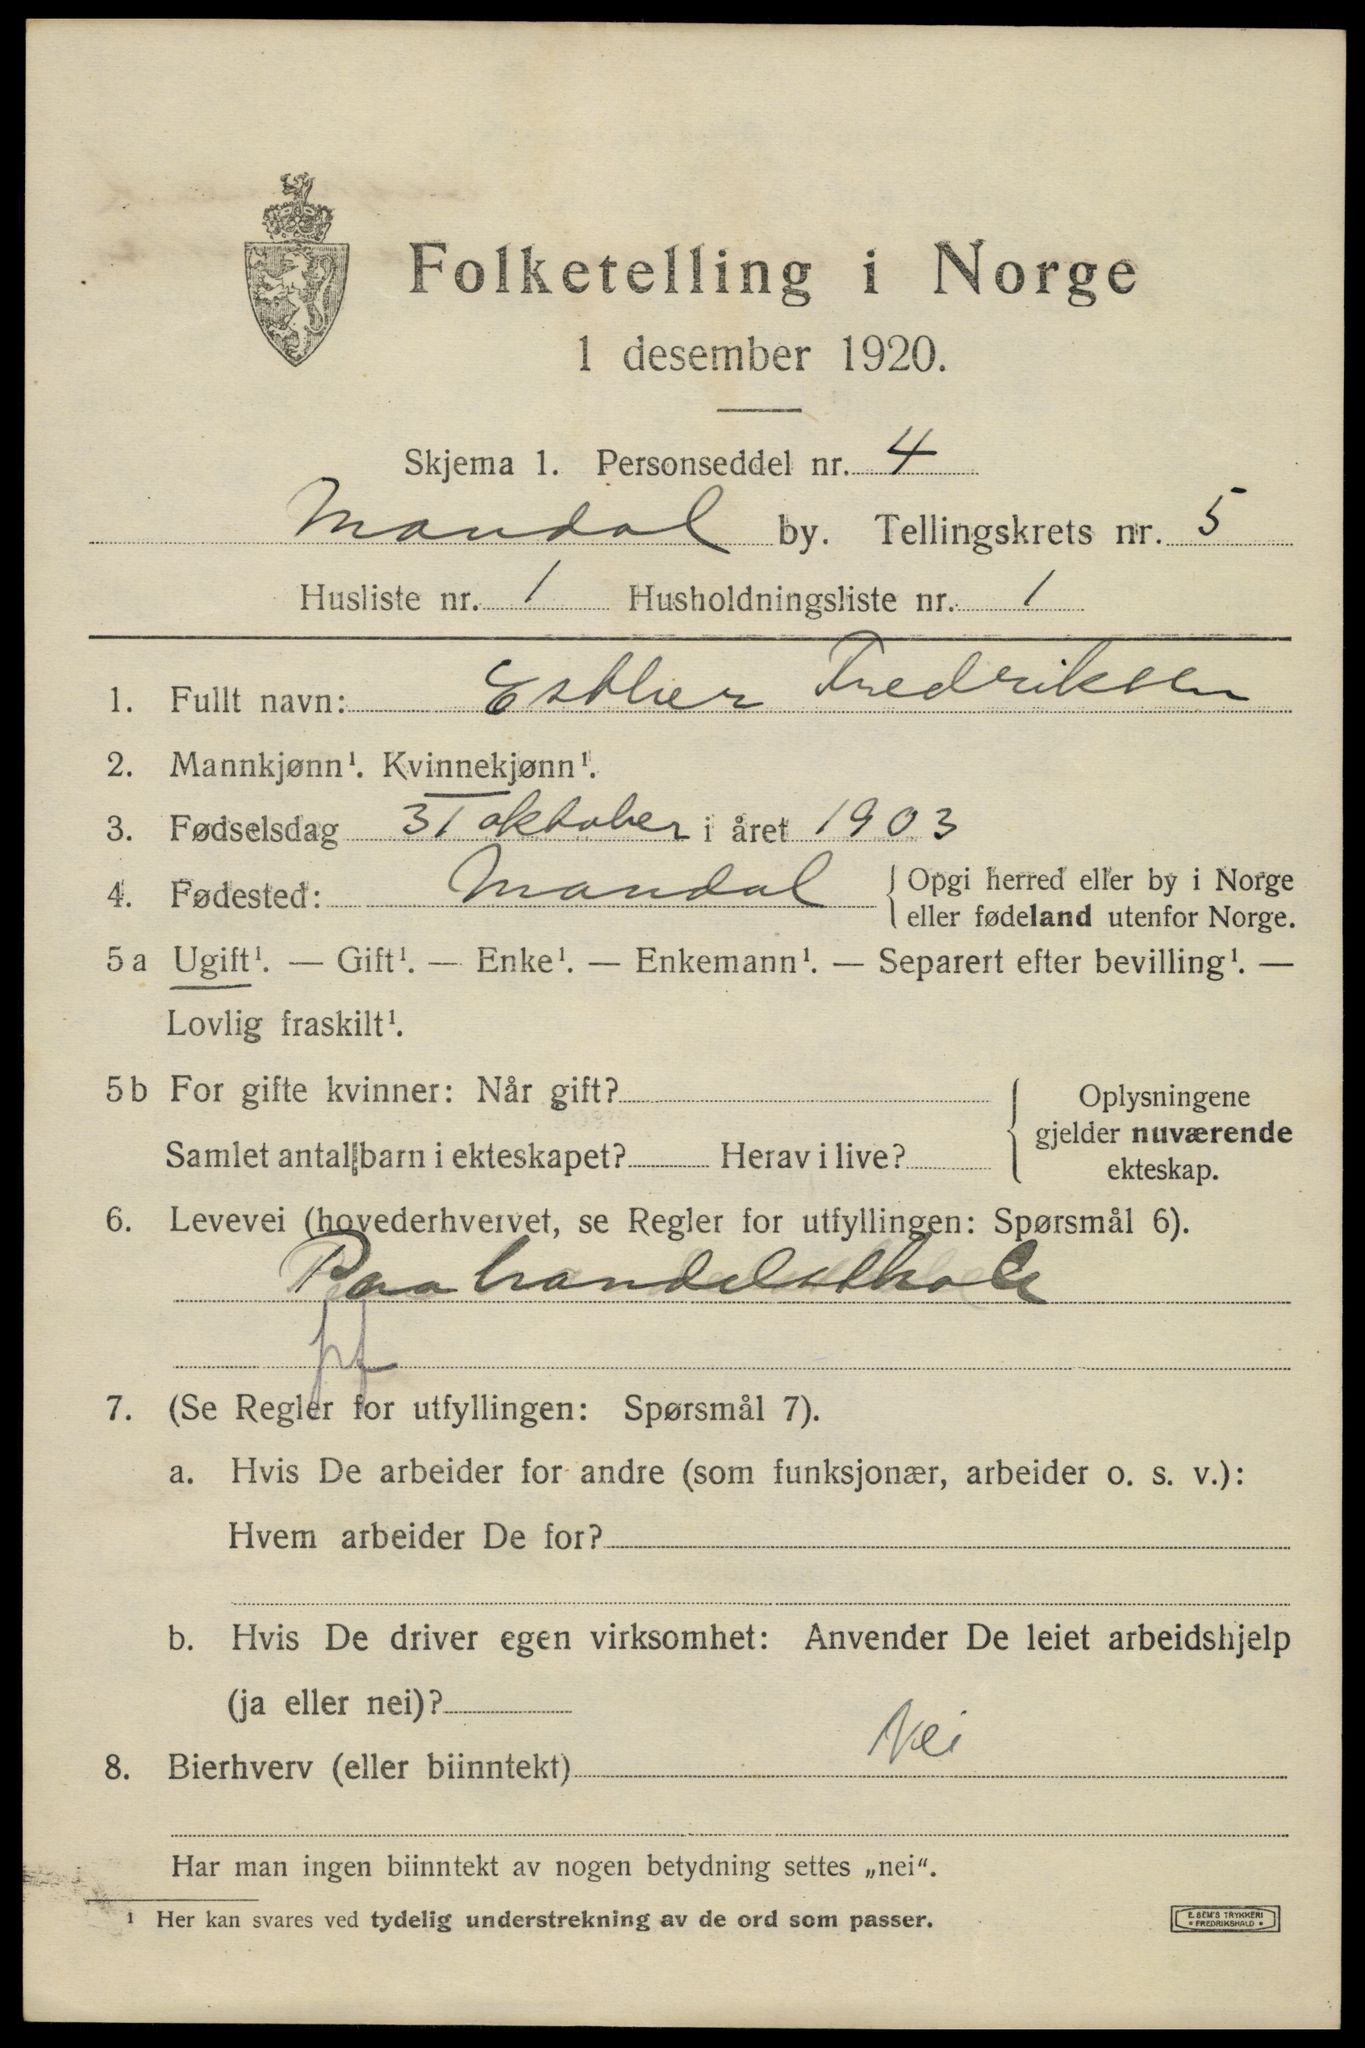 Folketelling i Norge
1 desember 1920.
Skjema 1. Personseddel nr. 4
Mandal by. Tellingskrets nr. 5
Husliste nr. 1 Husholdningsliste nr. 1
1. Fullt navn: Esther Fredriksen
2. Mannkjønn¹. Kvinnekjønn¹.
3. Fødselsdag 31 oktober i året 1903
4. Fødested: Mandal { Opgi herred eller by i Norge
eller fødeland utenfor Norge.
5 a Ugift¹. — Gift¹. — Enke¹. — Enkemann¹. — Separert efter bevilling¹. —
Lovlig fraskilt¹.
5 b For gifte kvinner: Når gift? { Oplysningene
gjelder nuværende
Samlet antal barn i ekteskapet? Herav i live?
ekteskap.
6. Levevei (hovederhvervet, se Regler for utfyllingen: Spørsmål 6).
Paa handelsskole
pf
7. (Se Regler for utfyllingen: Spørsmål 7).
a. Hvis De arbeider for andre (som funksjonær, arbeider o. s. v.):
Hvem arbeider De for?
b. Hvis De driver egen virksomhet: Anvender De leiet arbeidshjelp
(ja eller nei)?
8. Bierhverv (eller biinntekt) Nei
Har man ingen biinntekt av nogen betydning settes „nei“.
¹ Her kan svares ved tydelig understrekning av de ord som passer.
E. SEM'S TRYKKERI
• FREDRIKSHALD •